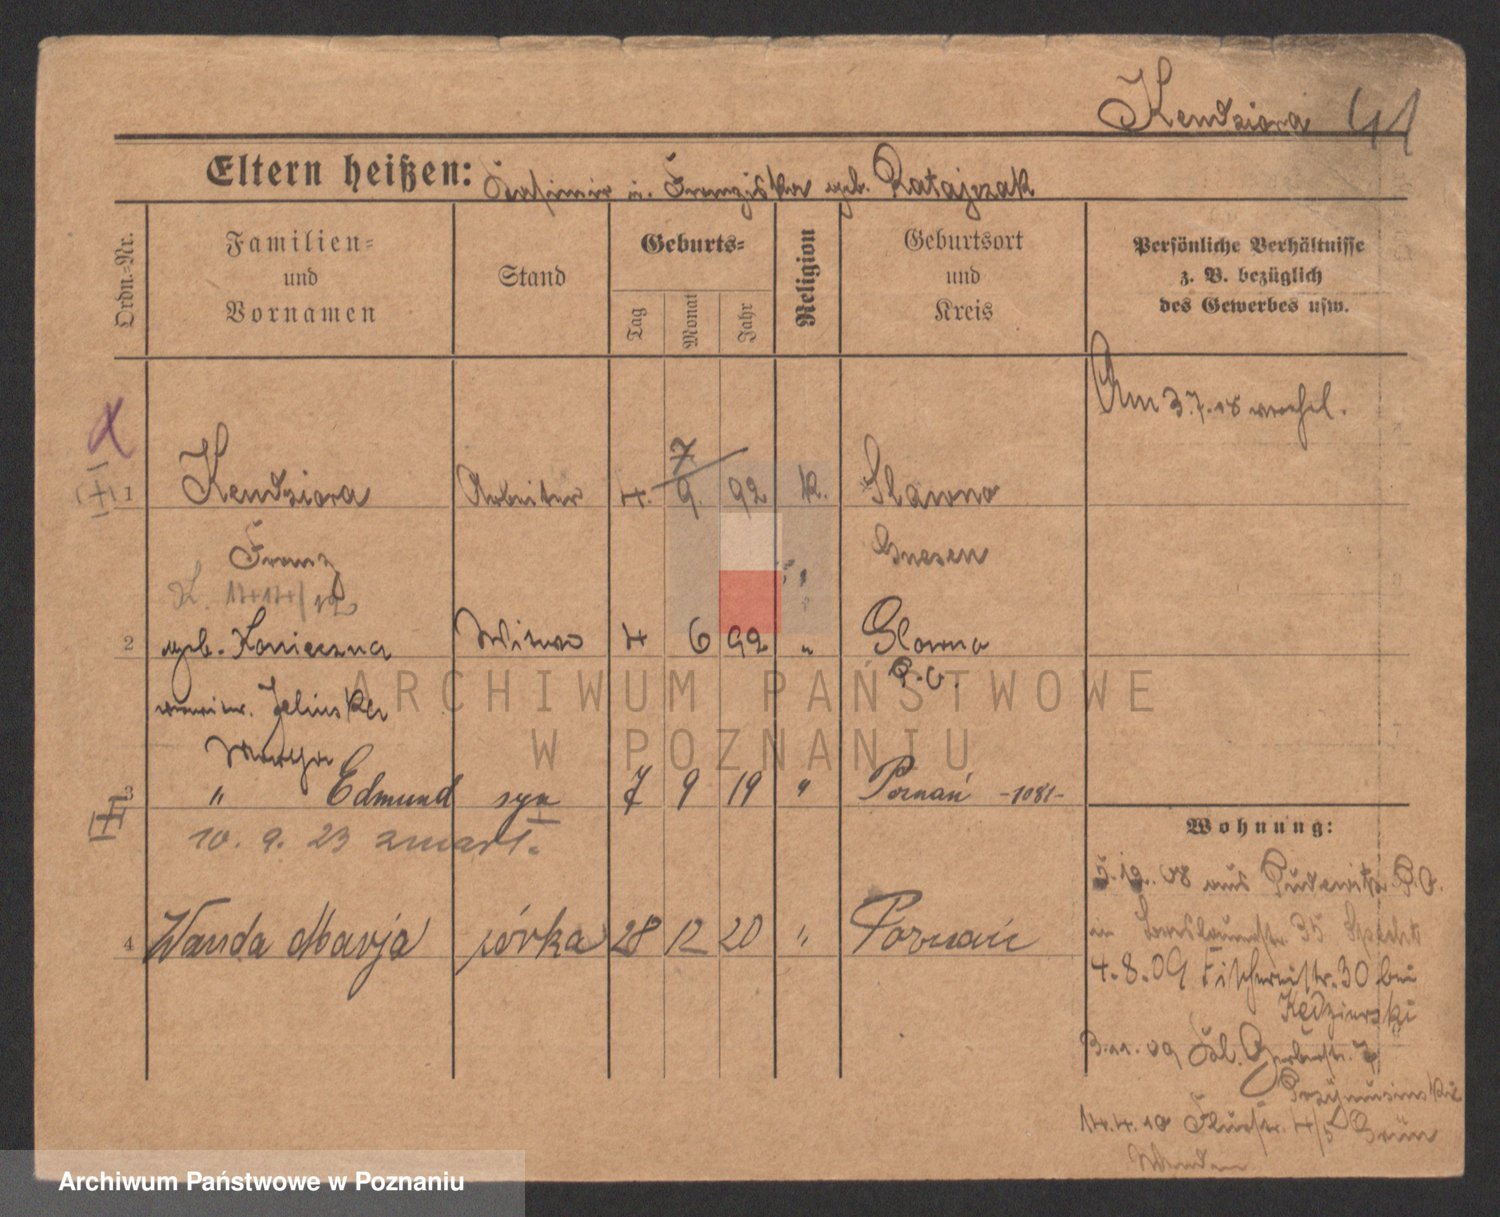 Kendziora 41
Eltern heißen: Kasimir u. Franziska geb. Ratajczak
Ordn.-Nr.
Familien- und Vornamen
Stand
Geburts-
Tag
Monat
Jahr
Religion
Geburtsort und Kreis
Persönliche Verhältnisse
z. B. bezüglich
des Gewerbes usw.
Am 3.7.18
7
1 Kendziora Arbeiter 4. 9. 92 k. Slawno
Franz Gnesen
2 geb. Konieczna Witwe 4 6 92 „ Glowno
P.O.
Zelinska
3 „ Edmund syn 7 9 19 „ Poznań -1081-
10. 9. 23 zmarł.
Wohnung:
5.12.08 aus Pudewitz P.O.
4 Wanda Marja córka 28 12 20 „ Poznań
35 Specht
4.8.09 Fischereistr. 30 bei
Kędzierski
3.11.09 Gerberstr. 7
Przymusinski
14.4.10 Flurstr. 4/5 Grün
ARCHIWUM PAŃSTWOWE
W POZNANIU
Archiwum Państwowe w Poznaniu